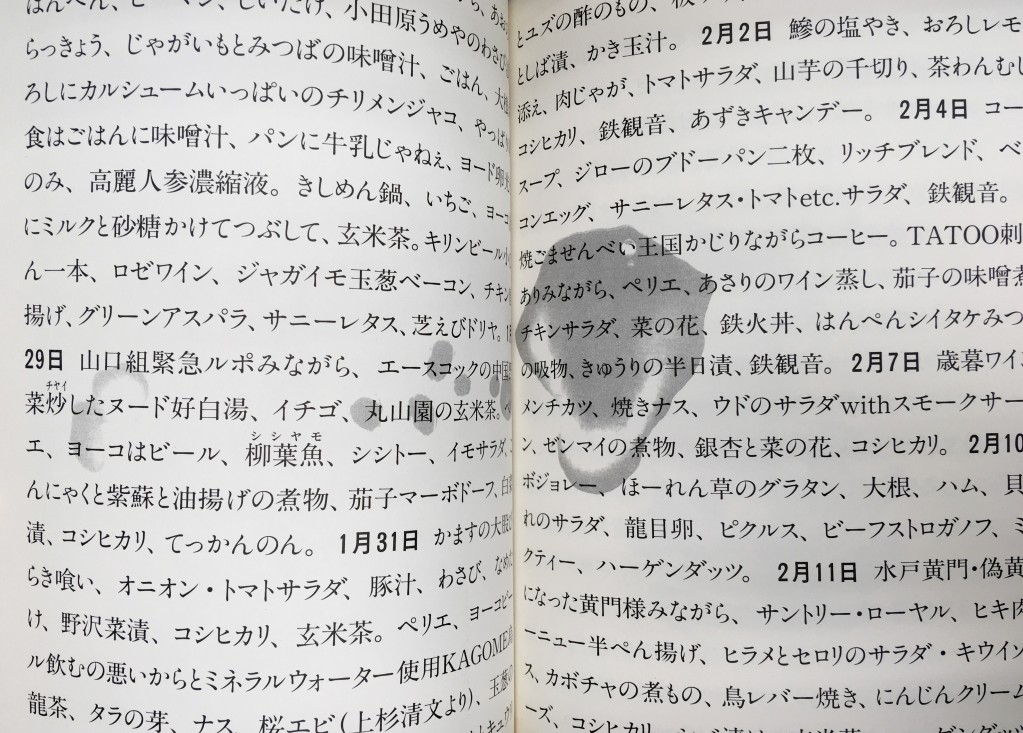 はんぺん、ピーマン、しいたけ、小田原うめやのわさび
らっきょう、じゃがいもとみつばの味噌汁、ごはん、大根
ろしにカルシュームいっぱいのチリメンジャコ、やっぱり
食はごはんに味噌汁、パンに牛乳じゃねぇ、ヨード卵
のみ、高麗人参濃縮液。きしめん鍋、いちご、ヨーコ
にミルクと砂糖かけてつぶして、玄米茶。キリンビール小
ん一本、ロゼワイン、ジャガイモ玉葱ベーコン、チキン
揚げ、グリーンアスパラ、サニーレタス、芝えびドリヤ。
29日 山口組緊急ルポみながら、エースコックの中国
チヤイ
菜炒したヌード好白湯、イチゴ、丸山園の玄米茶。ペ
シシヤモ
エ、ヨーコはビール、柳葉魚、シシトー、イモサラダ、
んにゃくと紫蘇と油揚げの煮物、茄子マーボドーフ、白
漬、コシヒカリ、てっかんのん。 1月31日 かますの大
らき喰い、オニオン・トマトサラダ、豚汁、わさび、なめ
け、野沢菜漬、コシヒカリ、玄米茶。ペリエ、ヨーコビー
ル飲むの悪いからとミネラルウォーター使用KAGOME
龍茶、タラの芽、ナス、桜エビ(上杉清文より)、玉葱
とユズの酢のもの、
としば漬、かき玉汁。 2月2日 鯵の塩やき、おろしレモ
添え、肉じゃが、トマトサラダ、山芋の千切り、茶わんむし
コシヒカリ、鉄観音、あずきキャンデー。 2月4日 コー
スープ、ジローのブドーパン二枚、リッチブレンド、ベ
コンエッグ、サニーレタス・トマトetc.サラダ、鉄観音。
焼ごませんべい王国かじりながらコーヒー。TATOO刺
ありみながら、ペリエ、あさりのワイン蒸し、茄子の味噌煮
チキンサラダ、菜の花、鉄火丼、はんぺんシイタケみつ
の吸物、きゅうりの半日漬、鉄観音。 2月7日 歳暮ワイ
メンチカツ、焼きナス、ウドのサラダwithスモークサー
ン、ゼンマイの煮物、銀杏と菜の花、コシヒカリ。 2月10
ボジョレー、ほーれん草のグラタン、大根、ハム、貝
れのサラダ、龍目卵、ピクルス、ビーフストロガノフ、ミ
クティー、ハーゲンダッツ。 2月11日 水戸黄門・偽黄
になった黄門様みながら、サントリー・ローヤル、ヒキ肉
ーニュー半ぺん揚げ、ヒラメとセロリのサラダ・キウイン
ス、カボチャの煮もの、鳥レバー焼き、にんじんクリーム
ーズ、コシヒカリ